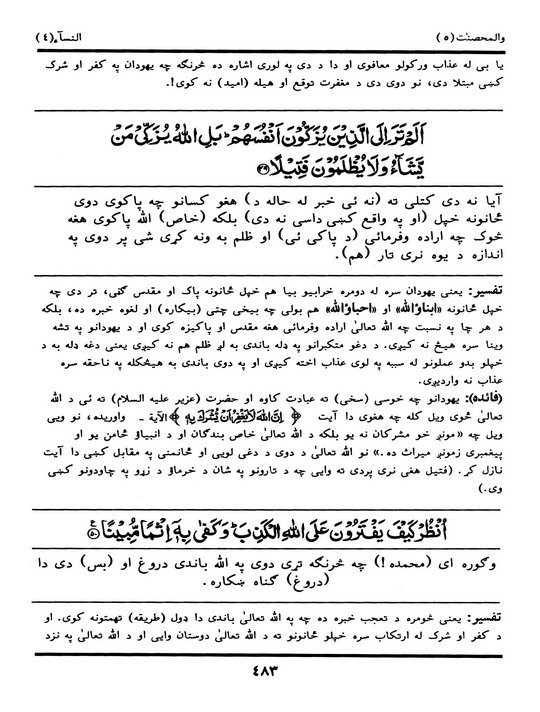 والمحصنٰت (٥) النسآء (٤)
یا بی له عذاب ورکولو معافوی او دا د دی په لوری اشاره ده څرنګه چه یهودان په کفر او شرک
کښی مبتلا دی، نو دوی دی د مغفرت توقع او هیله (امید) نه کوی!.
اَلَمْ تَرَ اِلَى الَّذِيْنَ يُزَكُّوْنَ اَنْفُسَهُمْ بَلِ اللهُ يُزَكِّيْ مَنْ
يَّشَآءُ وَلَا يُظْلَمُوْنَ فَتِيْلًا ﴿٤٩﴾
آیا نه دی کتلی ته (نه ئی خبر له حاله د) هغو کسانو چه پاکوی دوی
ځانونه خپل (او په واقع کښی داسی نه دی) بلکه (خاص) الله پاکوی هغه
څوک چه اراده وفرمائی (د پاکی ئی) او ظلم به ونه کړی شی پر دوی په
اندازه د یوه نری تار (هم).
تفسیر: یعنی یهودان سره له دومره خرابیو بیا هم خپل ځانونه پاک او مقدس ګڼی، تر دی چه
خپل ځانونه «ابناؤالله» او «احباؤالله» هم بولی چه بیخی چټی (بیکاره) او لغوه خبره ده، بلکه
د هر چا په نسبت چه الله تعالیٰ اراده وفرمائی هغه مقدس او پاکیزه کوی او د یهودانو په تشه
وینا سره هیڅ نه کیږی. د دغو متکبرانو په ډله باندی به لږ ظلم هم نه کیږی یعنی دغه ډله به د
خپلو بدو عملونو له سببه په لوی عذاب اخته کیږی او په دوی باندی به هیڅکله په ناحقه سره
عذاب نه واردیږی.
(فائده): یهودانو چه خوسی (سخی) ته عبادت کاوه او حضرت (عزیر علیه السلام) ته ئی د الله
تعالیٰ ځوی ویل کله چه هغوی دا آیت ﴿ اِنَّ اللهَ لَا يَغْفِرُ اَنْ يُّشْرَكَ بِهٖ ﴾ الآیة ـ واوریده، نو ویی
ویل چه «مونږ خو مشرکان نه یو بلکه د الله تعالیٰ خاص بندګان او د انبیاؤ ځامن یو او
پیغمبری زمونږ میراث ده.» نو الله تعالیٰ د دوی د دغی لویی او ځانمنی په مقابل کښی دا آیت
نازل کړ. (فتیل هغی نری پردی ته وایی چه د تارونو په شان د خرماؤ د زړو په چاودونو کښی
وی.)
اُنْظُرْ كَيْفَ يَفْتَرُوْنَ عَلَى اللهِ الْكَذِبَ وَكَفٰى بِهٖٓ اِثْمًا مُّبِيْنًا ﴿٥٠﴾
وګوره ای (محمده!) چه څرنګه تړی دوی په الله باندی دروغ او (بس) دی دا
(دروغ) ګناه ښکاره.
تفسیر: یعنی څومره د تعجب خبره ده چه په الله تعالیٰ باندی دا ډول (طریقه) تهمتونه کوی. او
د کفر او شرک له ارتکاب سره خپلو ځانونو ته د الله تعالیٰ دوستان وایی او د الله تعالیٰ په نزد
٤٨٣